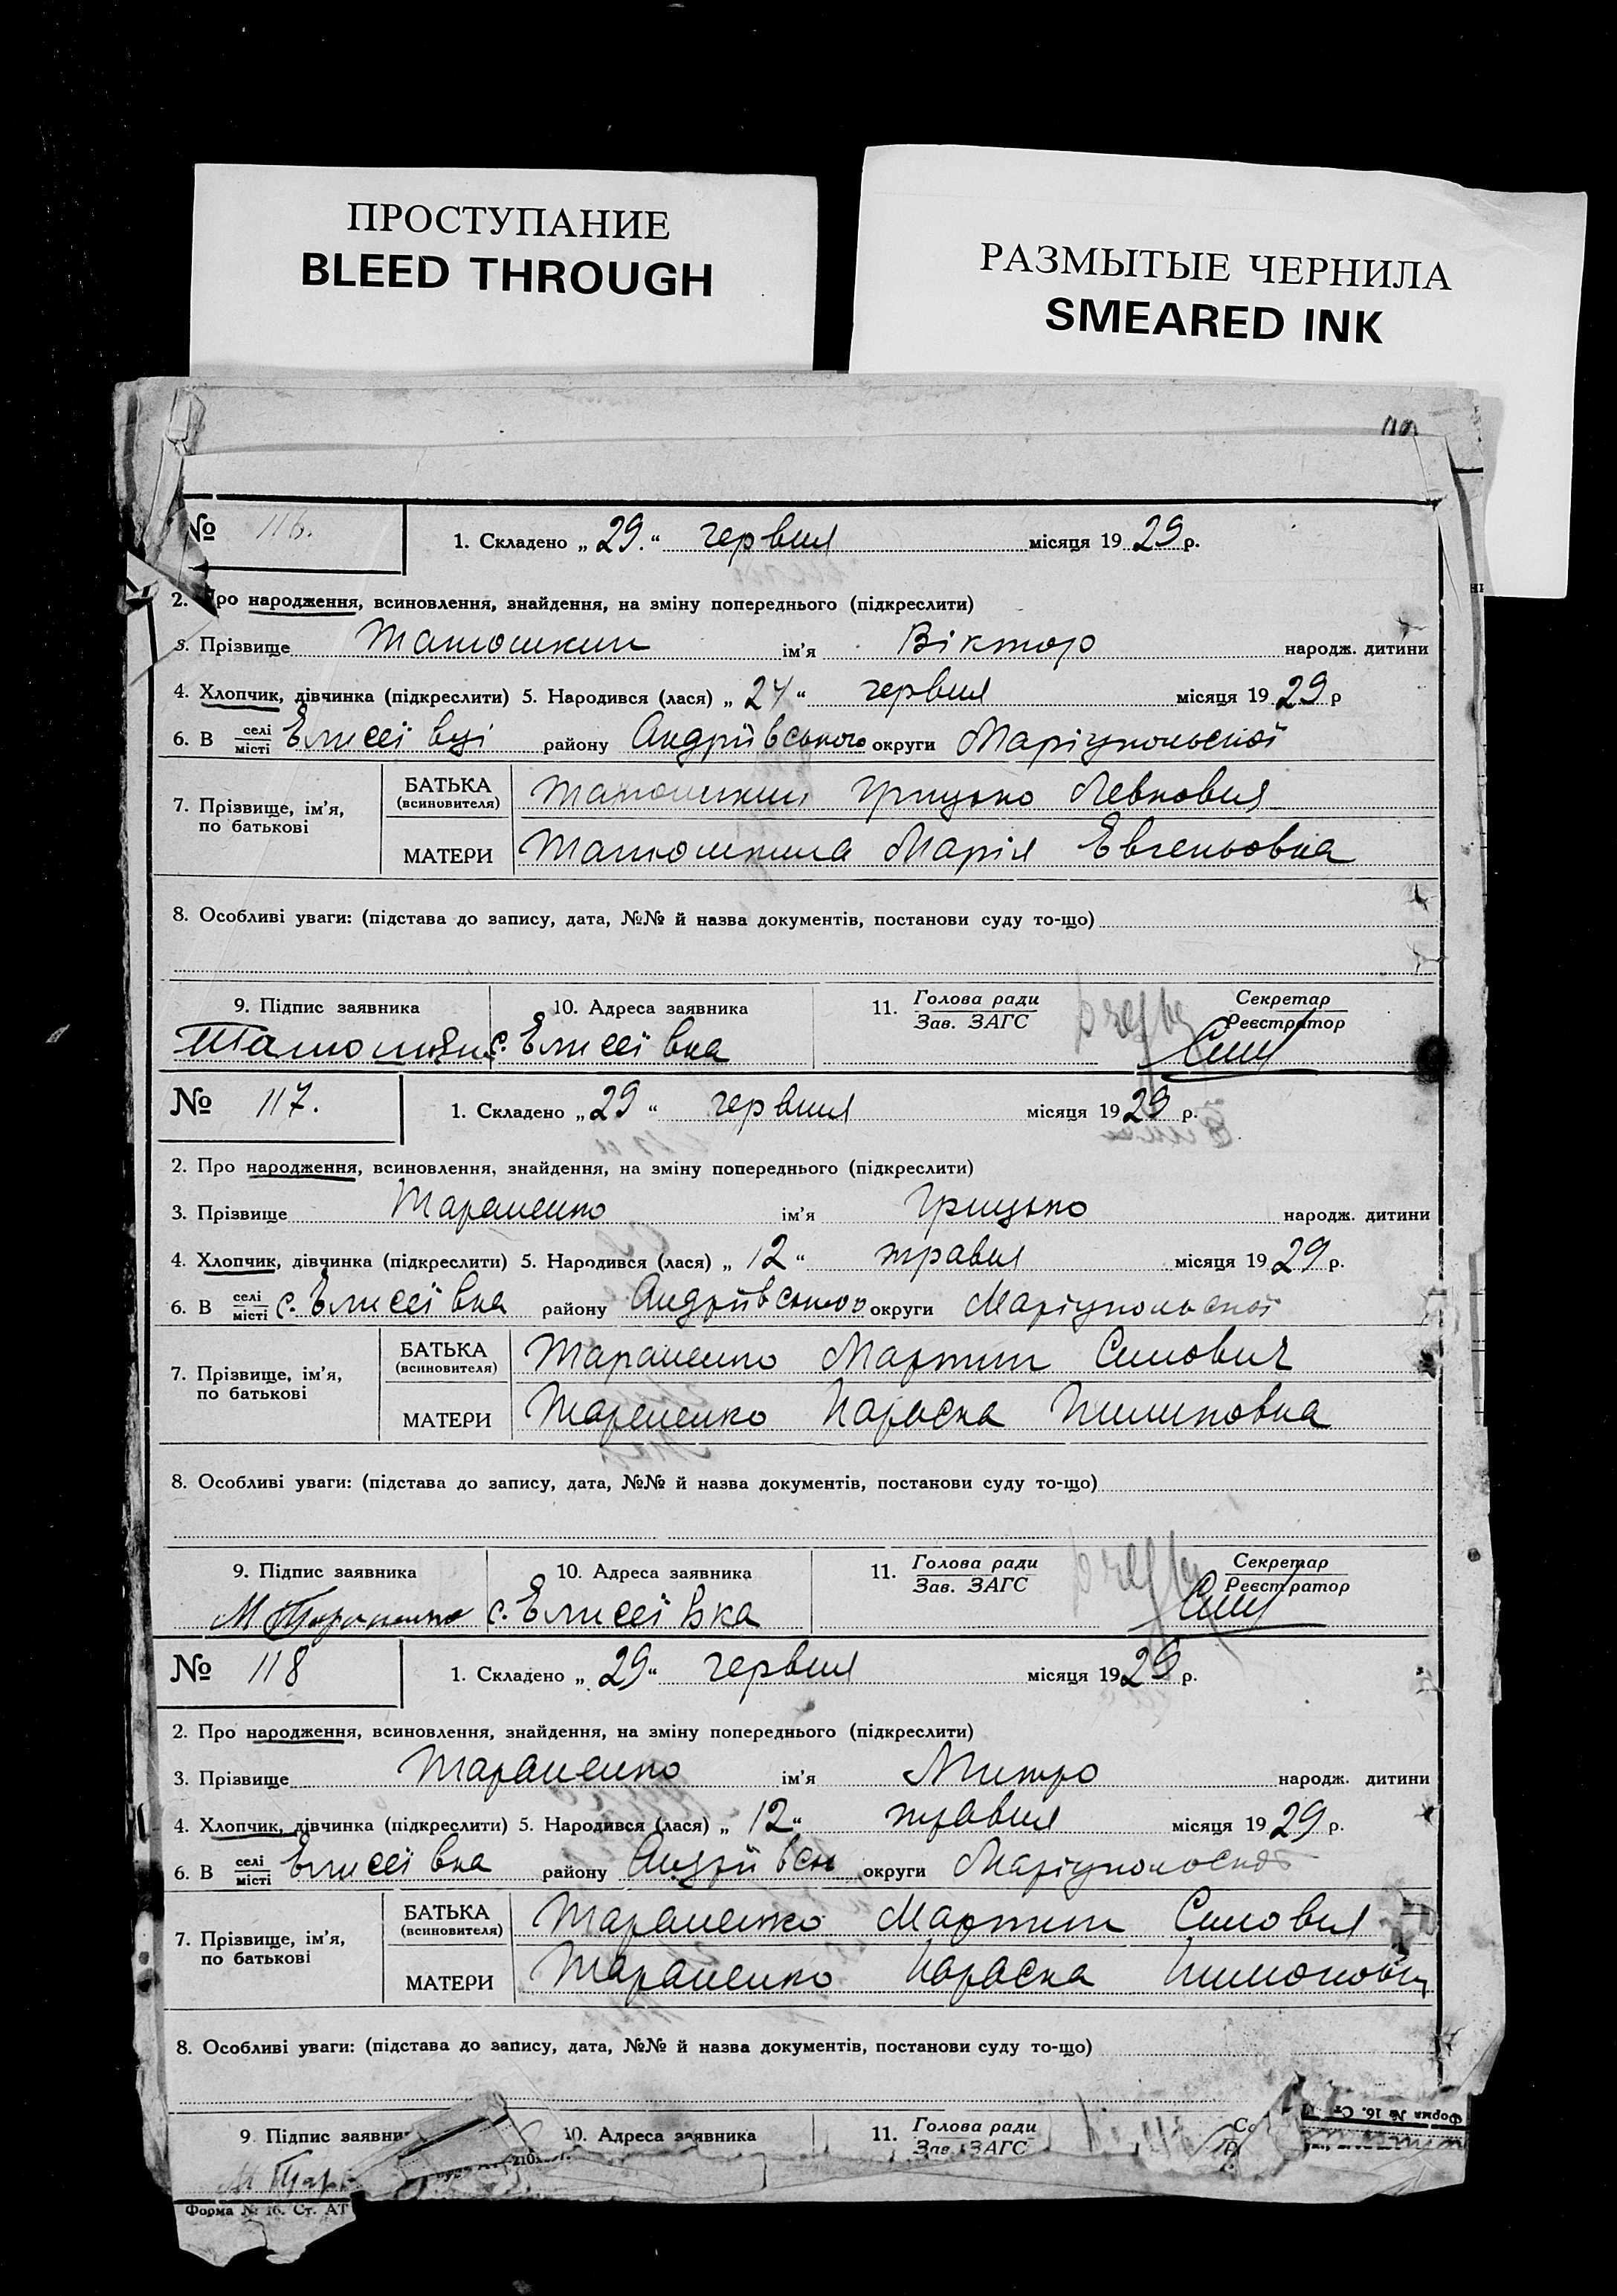 ПРОСТУПАНИЕ
BLEED THROUGH
РАЗМЫТЫЕ ЧЕРНИЛА
SMEARED INK
№ 116.
1. Складено „29.“ червня місяця 1929 р.
2. Про народження, всиновлення, знайдення, на зміну попереднього (підкреслити)
3. Прізвище Татошкин ім'я Віктор народж. дитини
4. Хлопчик, дівчинка (підкреслити) 5. Народився (лася) „24“ червня місяця 1929 р
6. В селі місті Елисеївці району Андріївського округи Маріупольської
7. Прізвище, ім'я, по батькові
БАТЬКА (всиновителя) Татошкин Грицько Левкович
МАТЕРИ Татошкина Марія Евгеньовна
8. Особливі уваги: (підстава до запису, дата, №№ й назва документів, постанови суду то-що)
9. Підпис заявника 10. Адреса заявника 11. Голова ради Зав. ЗАГС Секретар Реєстратор
с. Елисеївка
№ 117.
1. Складено „29“ червня місяця 1929 р.
2. Про народження, всиновлення, знайдення, на зміну попереднього (підкреслити)
3. Прізвище Тараненко ім'я Грицько народж. дитини
4. Хлопчик, дівчинка (підкреслити) 5. Народився (лася) „12“ травня місяця 1929 р.
6. В селі місті с. Елисеївка району Андріївського округи Маріупольської
7. Прізвище, ім'я, по батькові
БАТЬКА (всиновителя) Тараненко Мартин Силович
МАТЕРИ Тараненко Параска Пилиповна
8. Особливі уваги: (підстава до запису, дата, №№ й назва документів, постанови суду то-що)
9. Підпис заявника 10. Адреса заявника 11. Голова ради Зав. ЗАГС Секретар Реєстратор
М Тараненко с. Елисеївка
№ 118
1. Складено „29“ червня місяця 1929 р.
2. Про народження, всиновлення, знайдення, на зміну попереднього (підкреслити)
3. Прізвище Тараненко ім'я Митро народж. дитини
4. Хлопчик, дівчинка (підкреслити) 5. Народився (лася) „12“ травня місяця 1929 р.
6. В селі місті Елисеївка району Андріївськ округи Маріупольськ
7. Прізвище, ім'я, по батькові
БАТЬКА (всиновителя) Тараненко Мартин Силович
МАТЕРИ Тараненко Параска
8. Особливі уваги: (підстава до запису, дата, №№ й назва документів, постанови суду то-що)
9. Підпис заявни 10. Адреса заявника 11. Голова ради Зав. ЗАГС
М Тар
Форма № 16. Ст. АТ
Форма № 16. Ст.